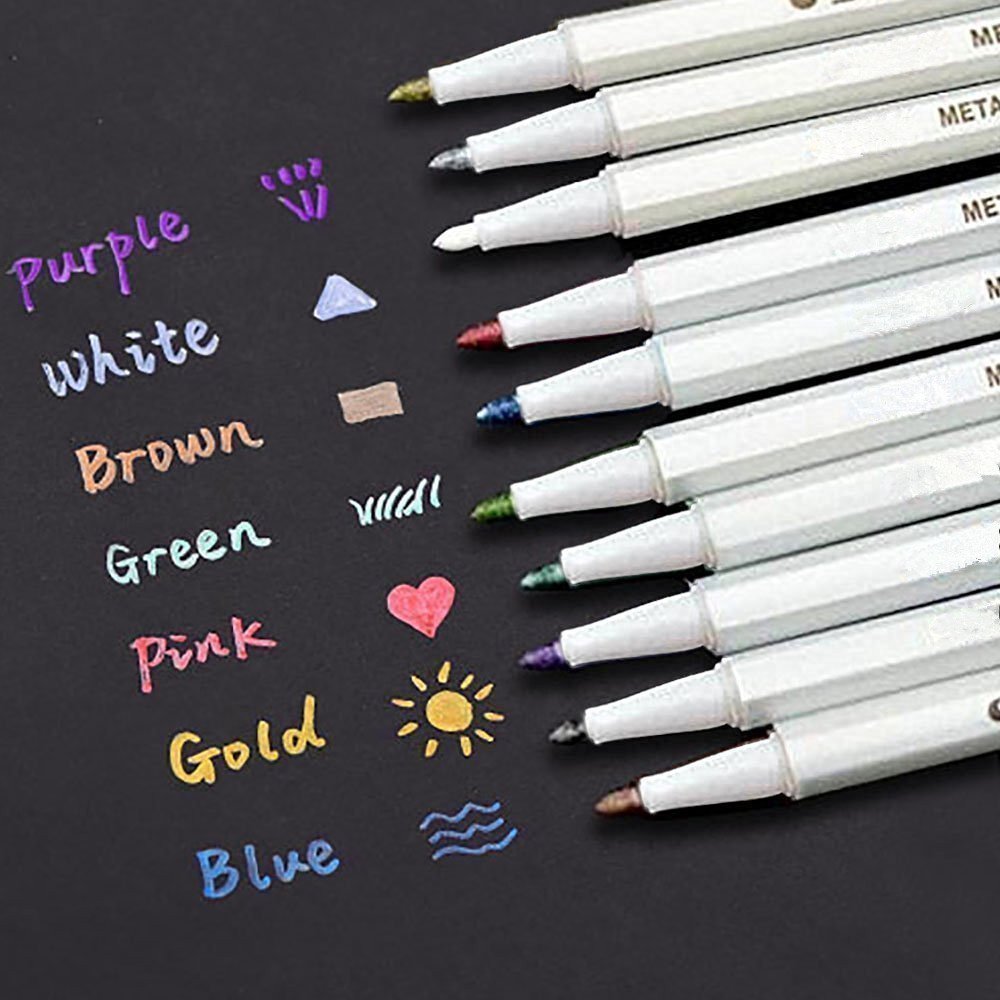 purple
white
Brown
Green
pink
Gold
Blue
ME
META
MET
M
M